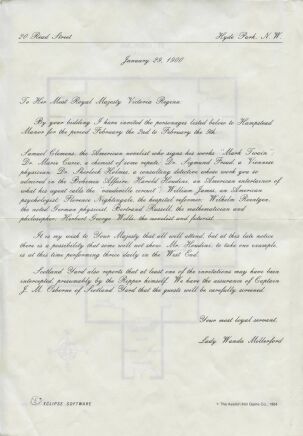 20 Road Street
Hyde Park, N.W.
January 29, 1900
To Her Most Royal Majesty Victoria Regina
By your bidding I have invited the personages listed below to Hampstead
Manor for the period February the 2nd to February the 9th.
Samuel Clemens, the American novelist who signs his works "Mark Twain";
Dr. Marie Curie, a chemist of some repute; Dr. Sigmund Freud, a Viennese
physician; Dr. Sherlock Holmes, a consulting detective whom you so
admired in the Bohemia Affaire; Harold Houdini, an American entertainer of
what his agent calls the "vaudeville circuit"; William James, an American
psychologist; Florence Nightingale, the hospital reformer; Wilhelm Roentgen,
the noted German physicist; Bertrand Russell, the mathematician and
philosopher; Herbert George Wells, the novelist and futurist.
It is my wish to Your Majesty that all will attend, but at this late notice
there is a possibility that some will not show. Mr. Houdini, to take one example,
is at this time performing three daily in the West End.
Scotland Yard also reports that at least one of the invitations may have been
intercepted, presumably by the Ripper himself. We have the assurance of Captain
J. M. Osborne of Scotland Yard that the guests will be carefully screened.
Your most loyal servant,
Lady Wanda Mellerford
ECLIPSE SOFTWARE
The Avalon Hill Game Co., 1984